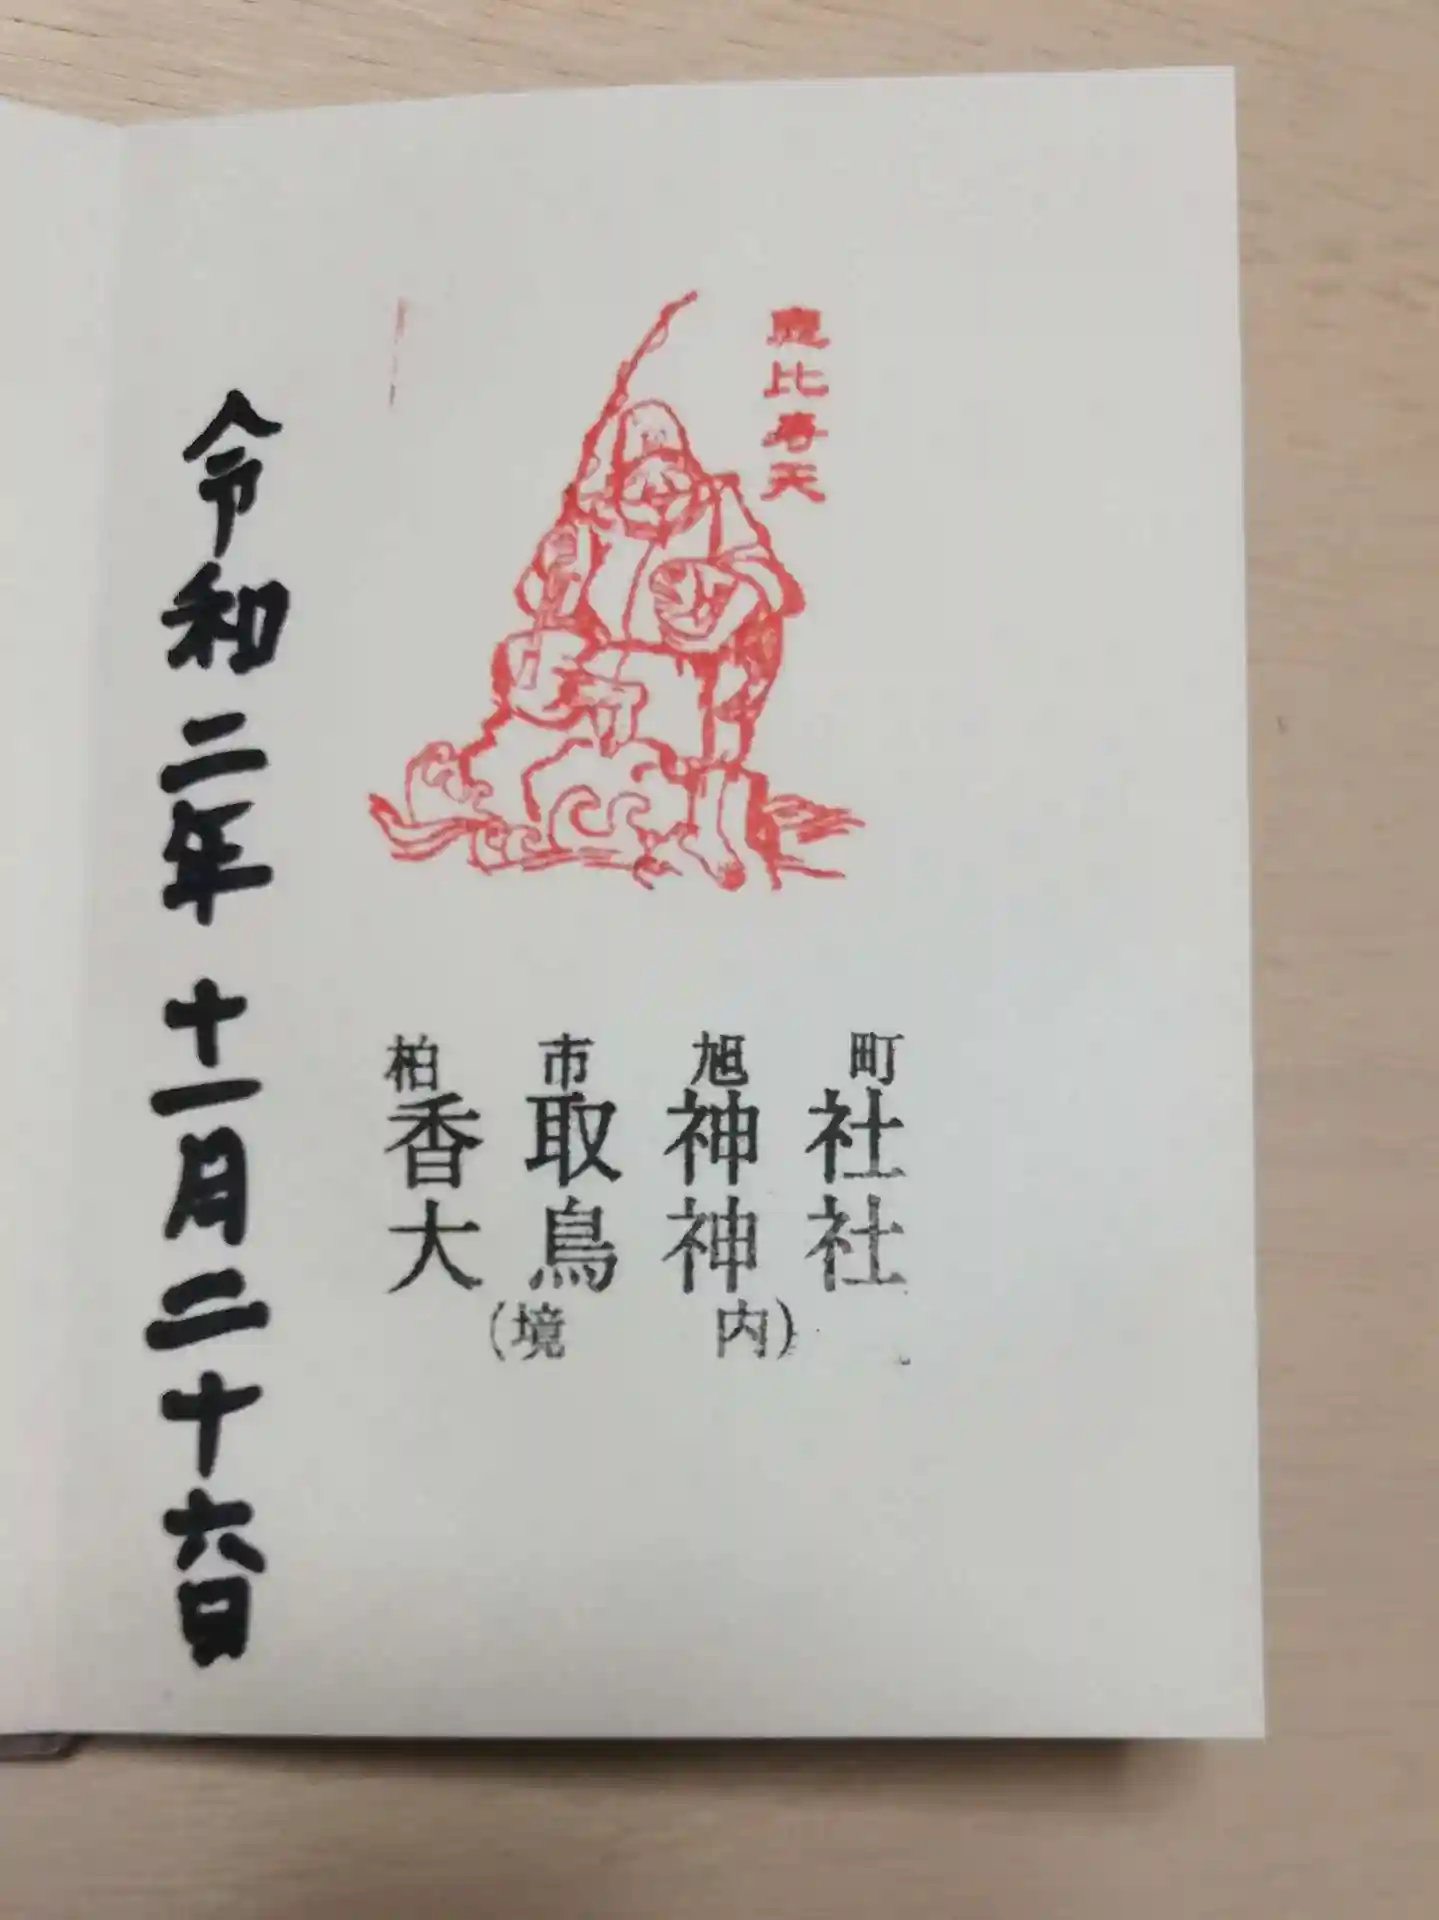 恵比寿天
柏市旭町
香取神社
大鳥神社
(境内)
令和二年十一月二十六日